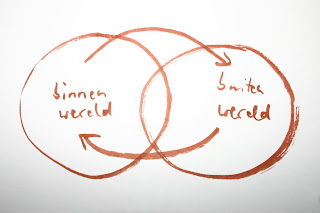 binnen
wereld
buiten
wereld